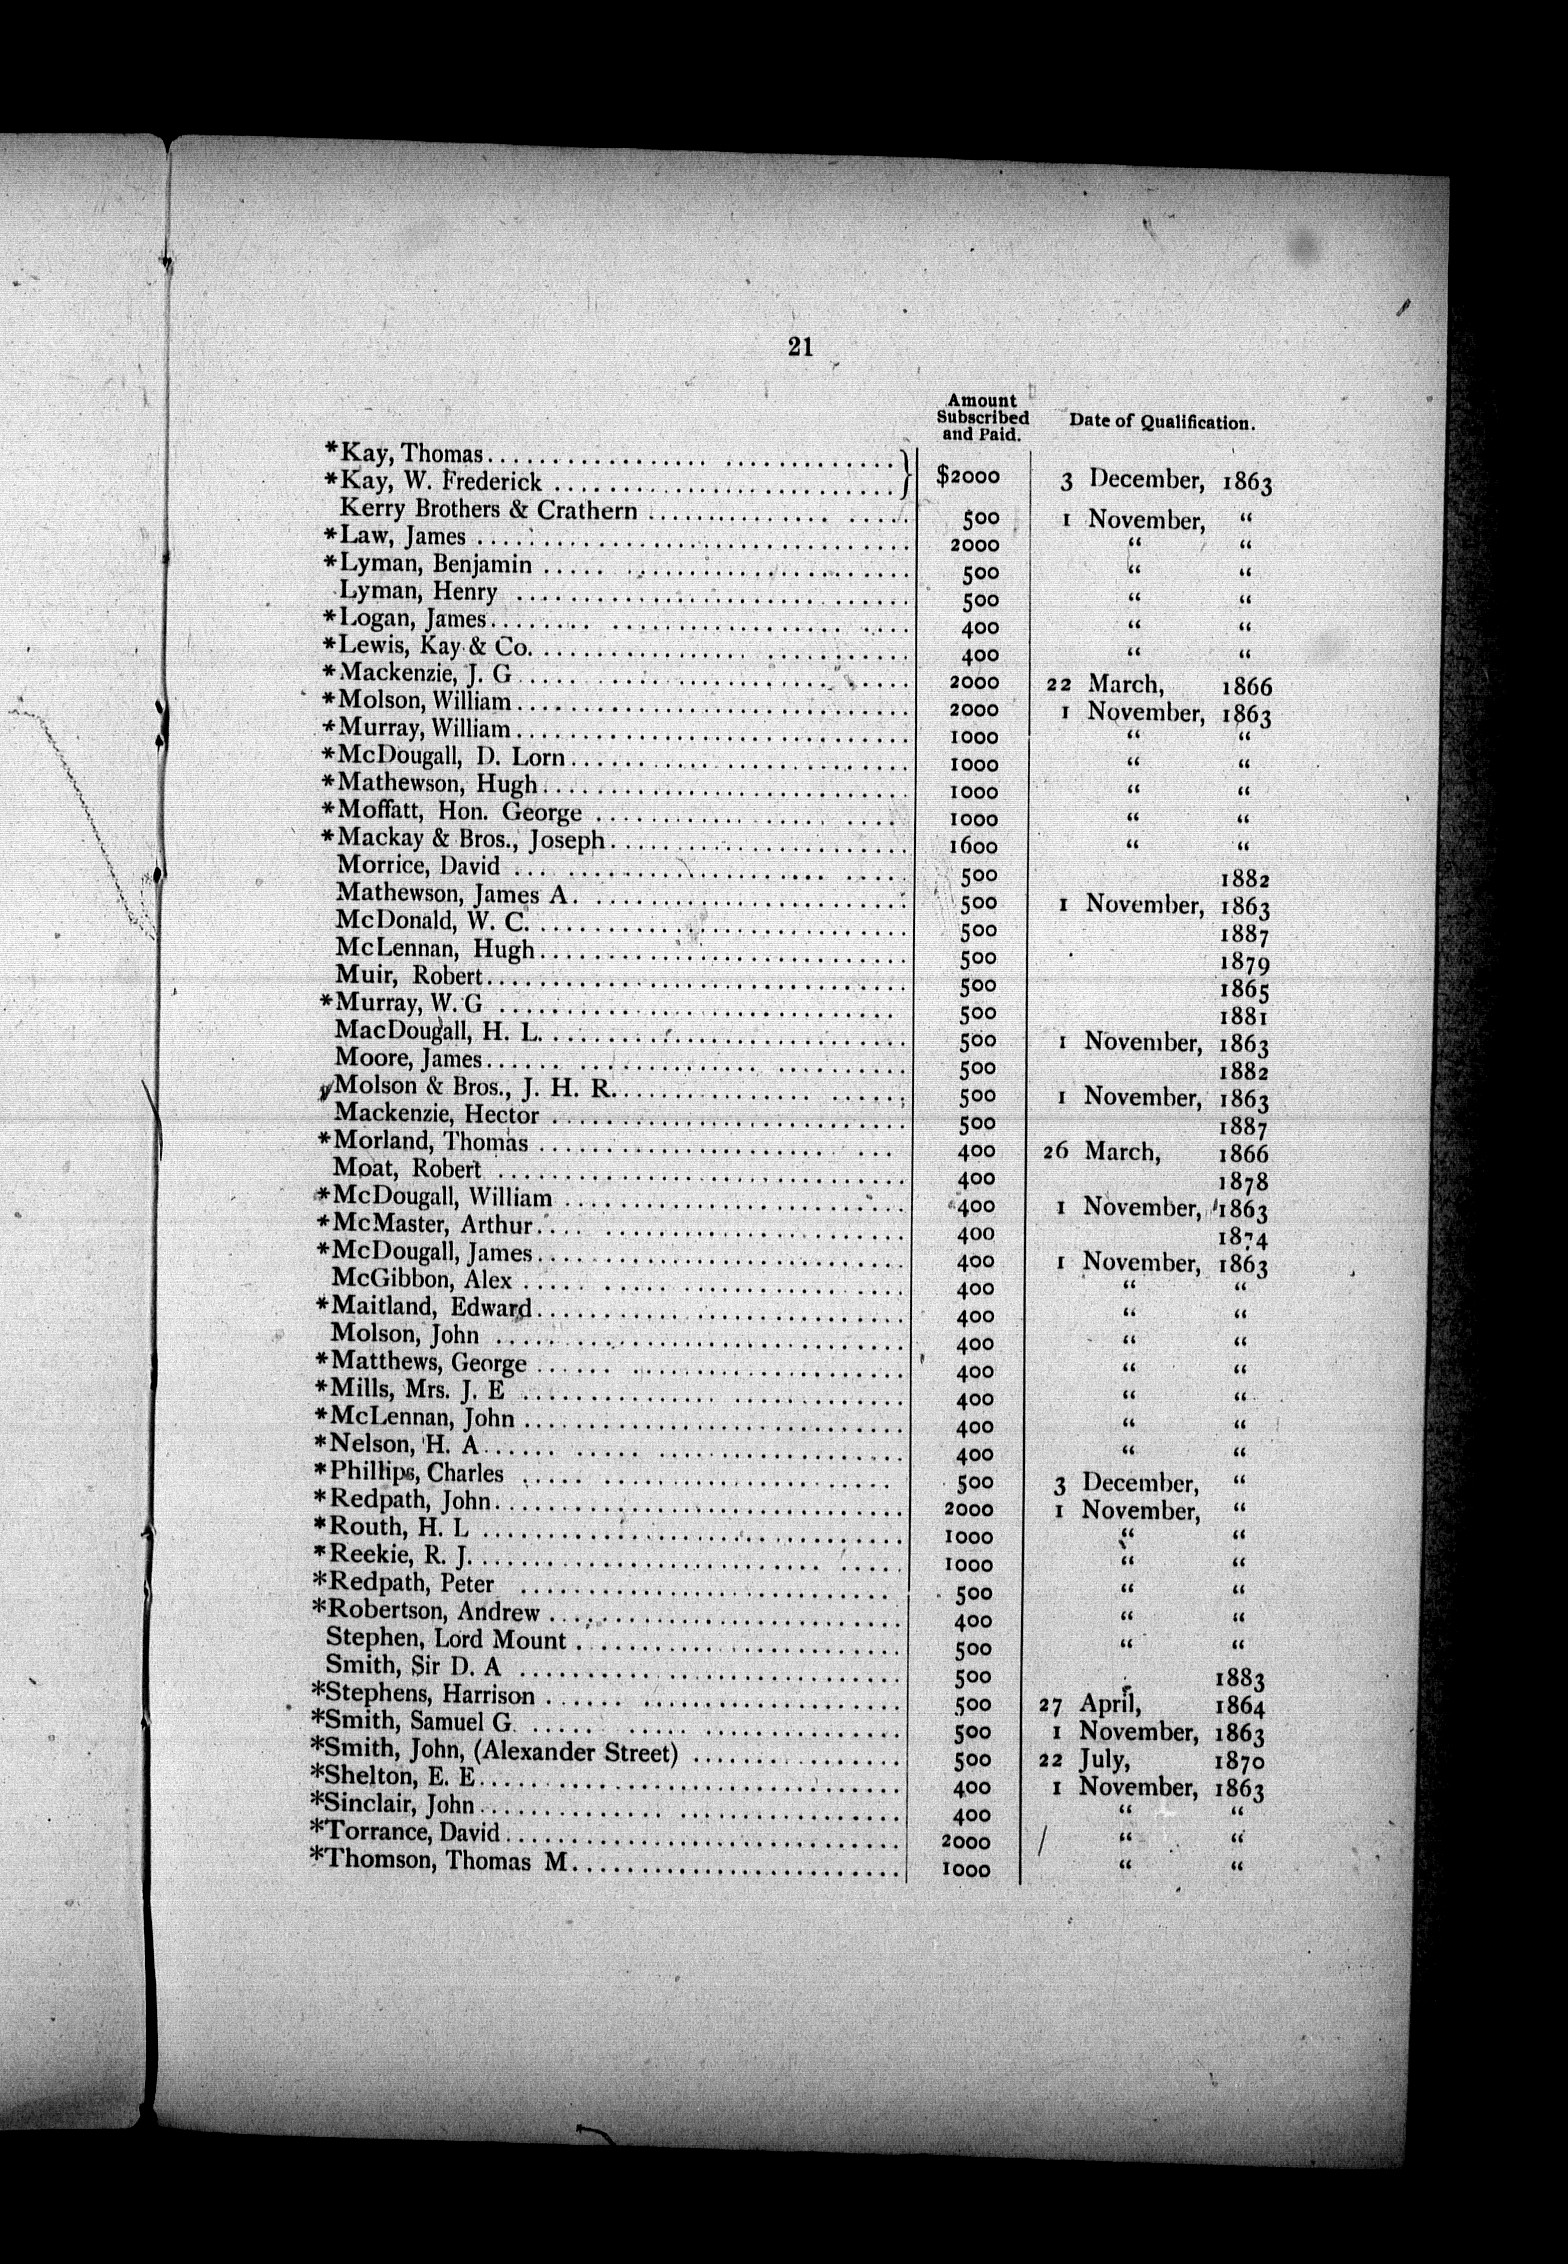 21
Amount Subscribed and Paid. Date of Qualification.
*Kay, Thomas
*Kay, W. Frederick } $2000 3 December, 1863
Kerry Brothers & Crathern 500 1 November, “
*Law, James 2000 “ “
*Lyman, Benjamin 500 “ “
Lyman, Henry 500 “ “
*Logan, James 400 “ “
*Lewis, Kay & Co. 400 “ “
*Mackenzie, J. G 2000 22 March, 1866
*Molson, William 2000 1 November, 1863
*Murray, William 1000 “ “
*McDougall, D. Lorn 1000 “ “
*Mathewson, Hugh 1000 “ “
*Moffatt, Hon. George 1000 “ “
*Mackay & Bros., Joseph 1600 “ “
Morrice, David 500 1882
Mathewson, James A. 500 1 November, 1863
McDonald, W. C. 500 1887
McLennan, Hugh 500 1879
Muir, Robert 500 1865
*Murray, W. G 500 1881
MacDougall, H. L. 500 1 November, 1863
Moore, James 500 1882
Molson & Bros., J. H. R. 500 1 November, 1863
Mackenzie, Hector 500 1887
*Morland, Thomas 400 26 March, 1866
Moat, Robert 400 1878
*McDougall, William 400 1 November, 1863
*McMaster, Arthur 400 1874
*McDougall, James 400 1 November, 1863
McGibbon, Alex 400 “ “
*Maitland, Edward 400 “ “
Molson, John 400 “ “
*Matthews, George 400 “ “
*Mills, Mrs. J. E 400 “ “
*McLennan, John 400 “ “
*Nelson, H. A 400 “ “
*Phillips, Charles 500 3 December, “
*Redpath, John 2000 1 November, “
*Routh, H. L 1000 “ “
*Reekie, R. J. 1000 “ “
*Redpath, Peter 500 “ “
*Robertson, Andrew 400 “ “
Stephen, Lord Mount 500 “ “
Smith, Sir D. A 500 1883
*Stephens, Harrison 500 27 April, 1864
*Smith, Samuel G 500 1 November, 1863
*Smith, John, (Alexander Street) 500 22 July, 1870
*Shelton, E. E 400 1 November, 1863
*Sinclair, John 400 “ “
*Torrance, David 2000 “ “
*Thomson, Thomas M 1000 “ “